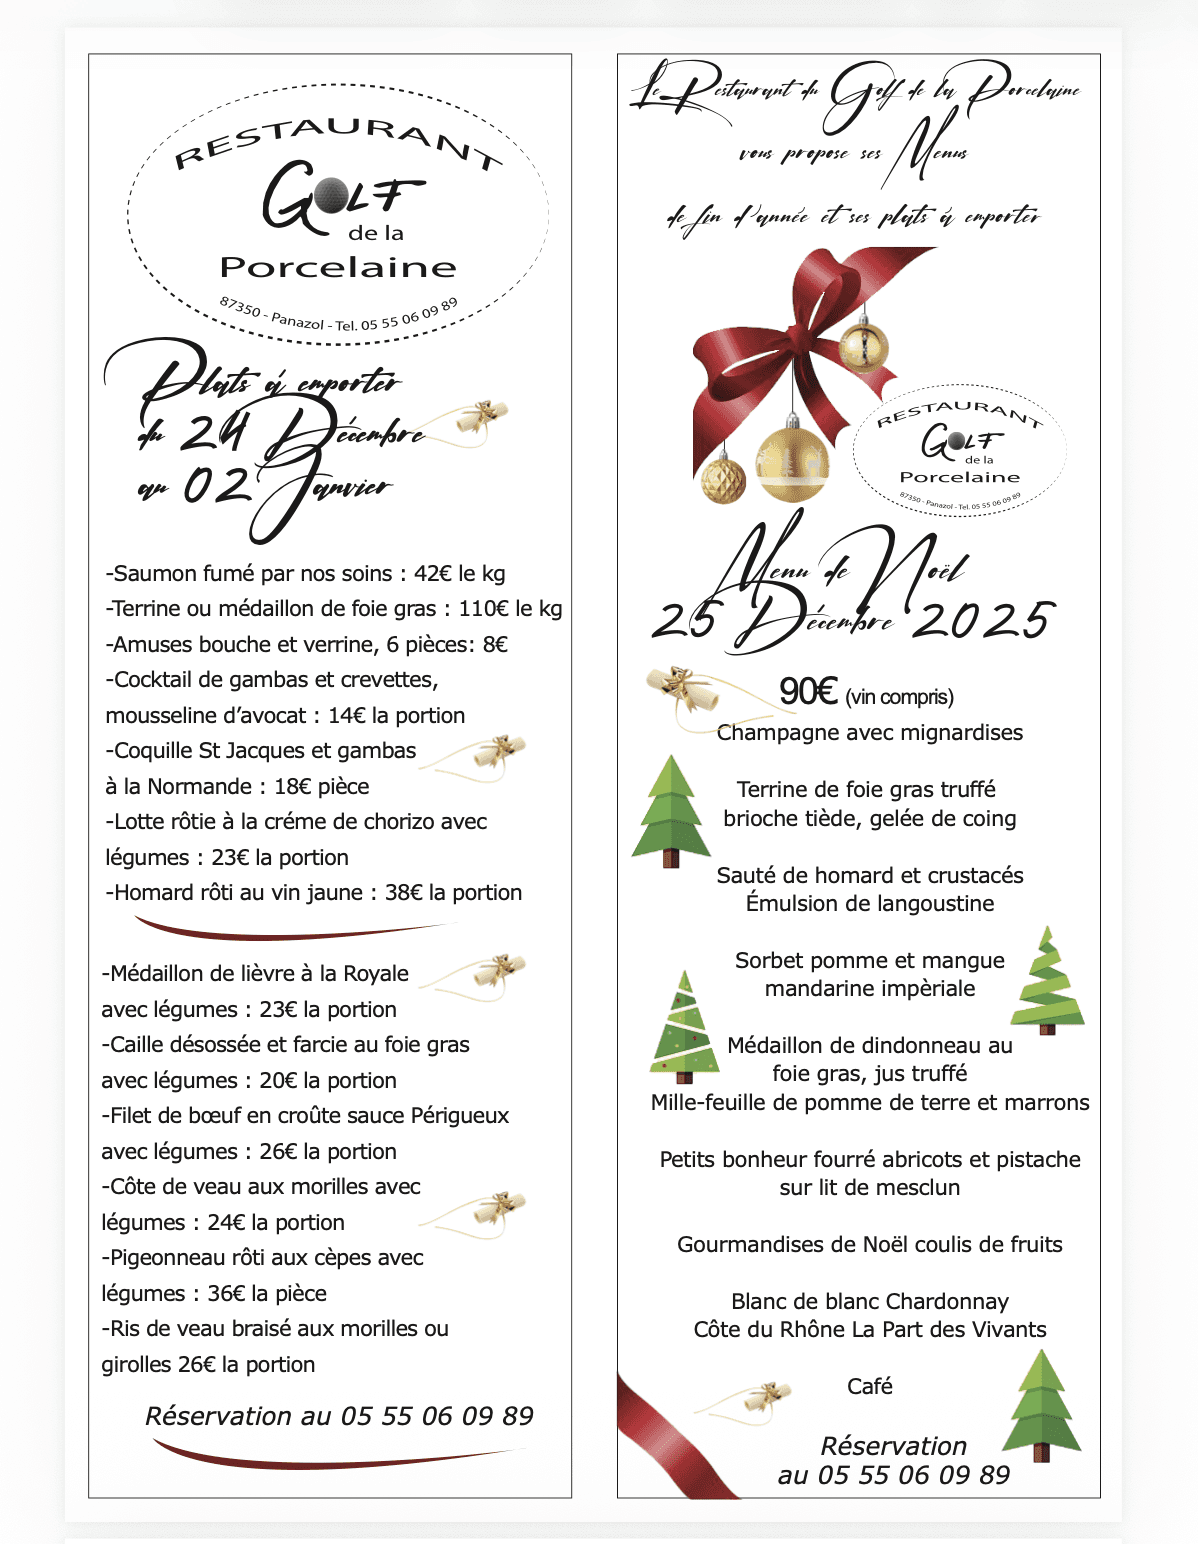 RESTAURANT
GOLF
de la
Porcelaine
87350 - Panazol - Tel. 05 55 06 09 89
Plats à emporter
du 24 Décembre
au 02 Janvier
-Saumon fumé par nos soins : 42€ le kg
-Terrine ou médaillon de foie gras : 110€ le kg
-Amuses bouche et verrine, 6 pièces: 8€
-Cocktail de gambas et crevettes,
mousseline d’avocat : 14€ la portion
-Coquille St Jacques et gambas
à la Normande : 18€ pièce
-Lotte rôtie à la créme de chorizo avec
légumes : 23€ la portion
-Homard rôti au vin jaune : 38€ la portion
-Médaillon de lièvre à la Royale
avec légumes : 23€ la portion
-Caille désossée et farcie au foie gras
avec légumes : 20€ la portion
-Filet de bœuf en croûte sauce Périgueux
avec légumes : 26€ la portion
-Côte de veau aux morilles avec
légumes : 24€ la portion
-Pigeonneau rôti aux cèpes avec
légumes : 36€ la pièce
-Ris de veau braisé aux morilles ou
girolles 26€ la portion
Réservation au 05 55 06 09 89
Le Restaurant du Golf de la Porcelaine
vous propose ses Menus
de fin d'année et ses plats à emporter
RESTAURANT
GOLF
de la
Porcelaine
87350 - Panazol - Tel. 05 55 06 09 89
Menu de Noël
25 Décembre 2025
90€ (vin compris)
Champagne avec mignardises
Terrine de foie gras truffé
brioche tiède, gelée de coing
Sauté de homard et crustacés
Émulsion de langoustine
Sorbet pomme et mangue
mandarine impèriale
Médaillon de dindonneau au
foie gras, jus truffé
Mille-feuille de pomme de terre et marrons
Petits bonheur fourré abricots et pistache
sur lit de mesclun
Gourmandises de Noël coulis de fruits
Blanc de blanc Chardonnay
Côte du Rhône La Part des Vivants
Café
Réservation
au 05 55 06 09 89